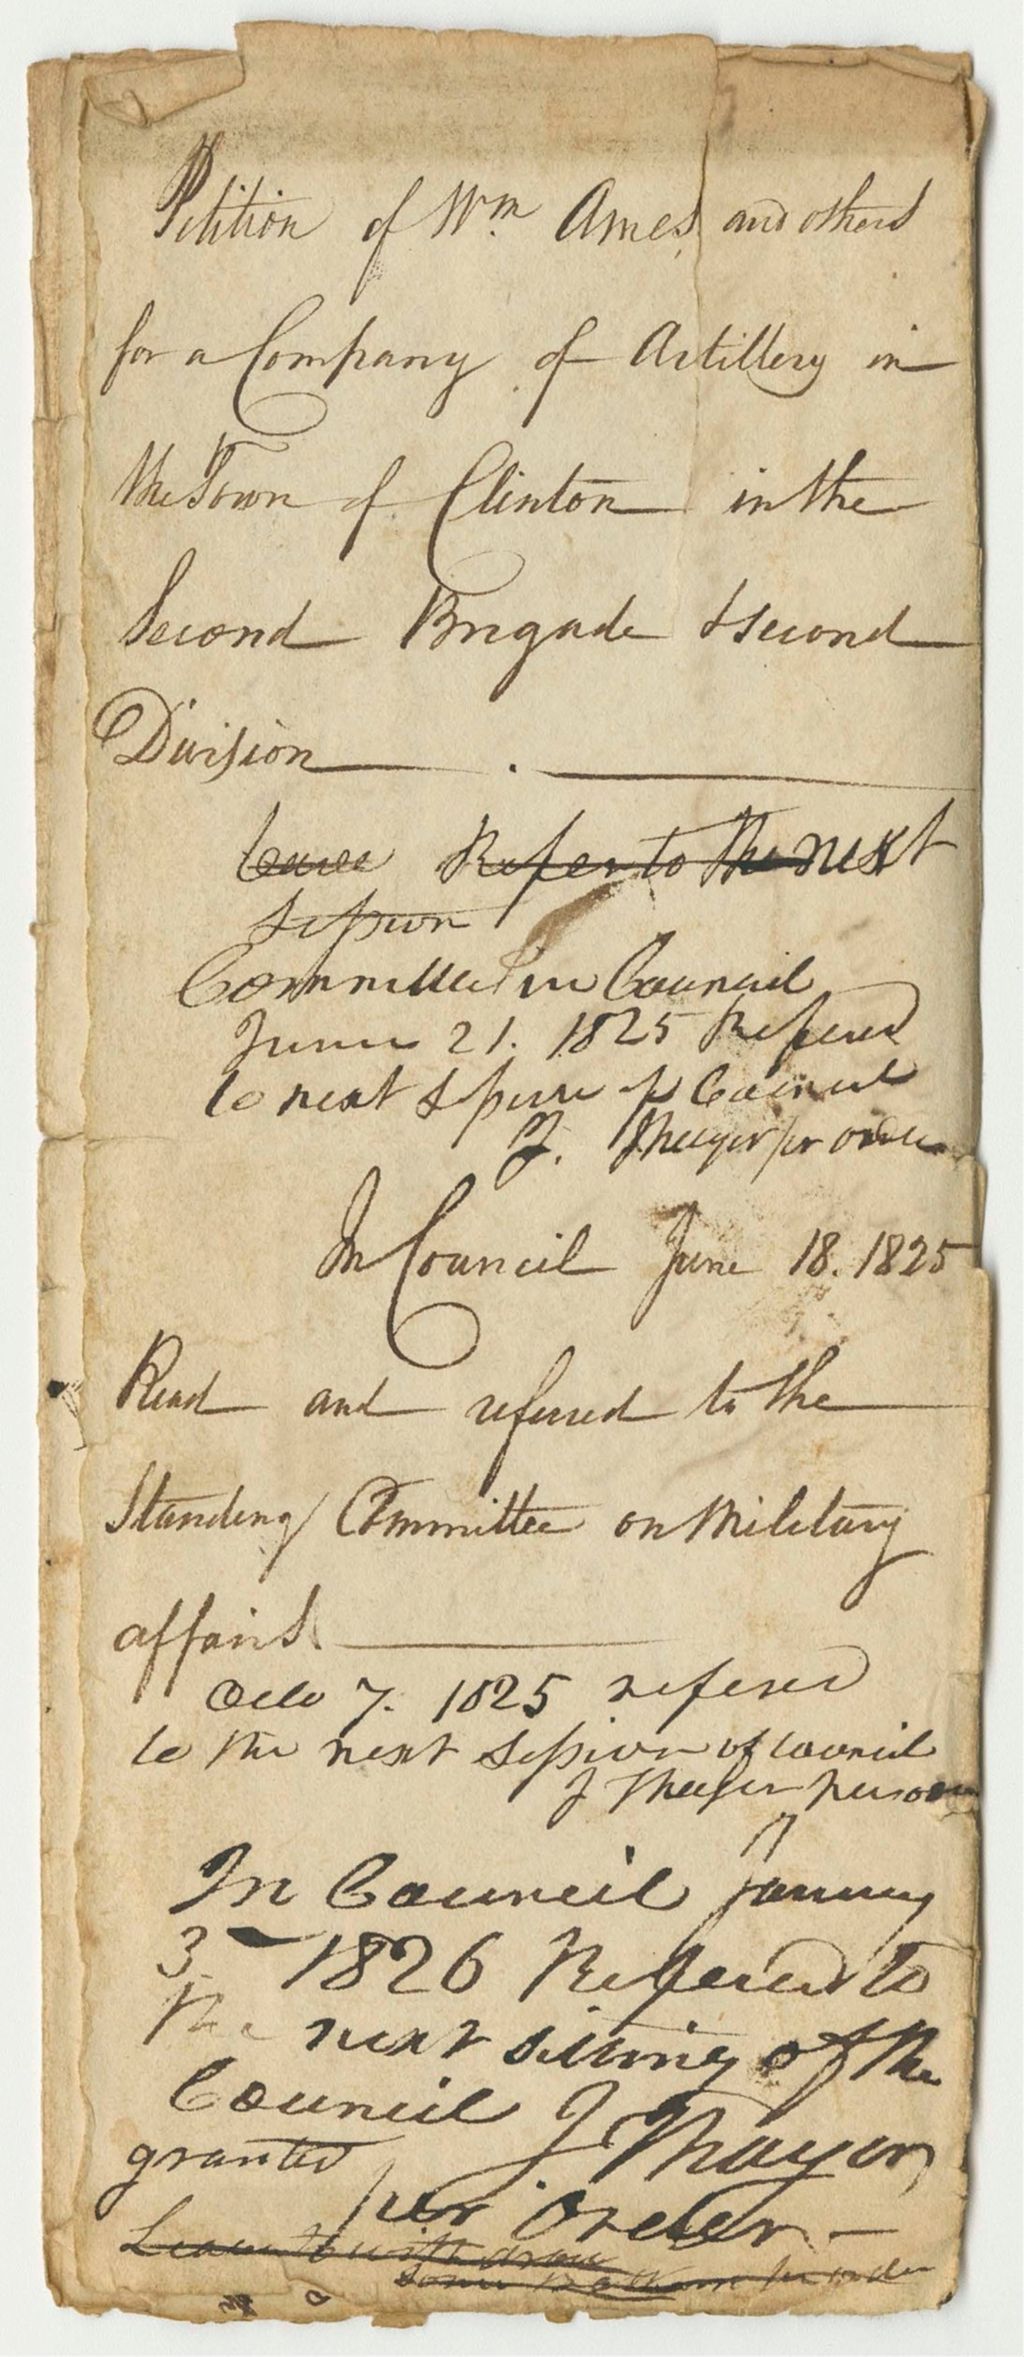 Petition of Wm. Ames and others
for a Company of Artillery in
the Town of Clinton in the
Second Brigade & second
Division
Refer to the next
session
Committee in Council
June 21. 1825 Refered
to next session of Council
J. Thayer per order
In Council June 18. 1825
Read and referred to the
Standing Committee on Military
affairs
Octo 7. 1825 refered
to the next session of Council
J Thayer per order
In Council January
3 1826 Refered to
the next sitting of the
Council J Thayer
granted
per order
Leave to withdraw
per order